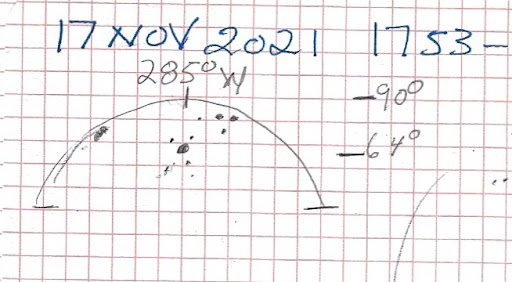 17 NOV 2021 1753-
285° W
-90°
-64°